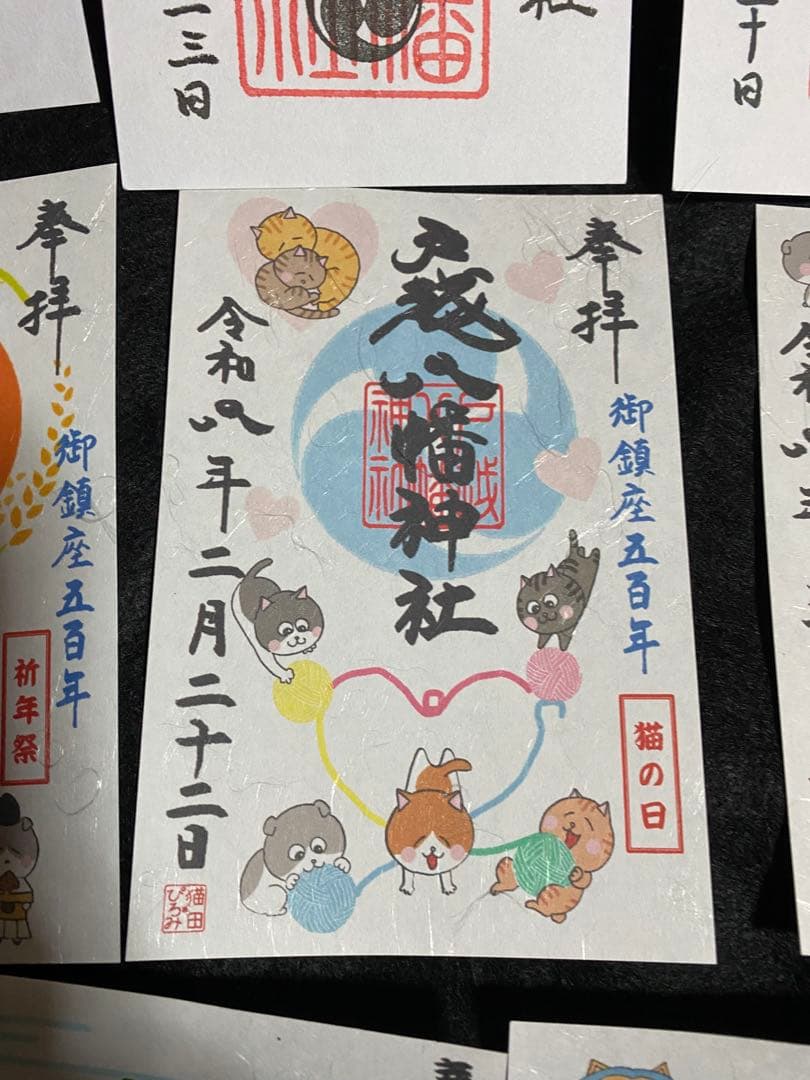 三日
社
十日
奉拝
御鎮座五百年
祈年祭
奉拝
御鎮座五百年
猫の日
戸越八幡神社
戸越八幡神社
令和八年二月二十二日
猫田
ぴろみ
令和八